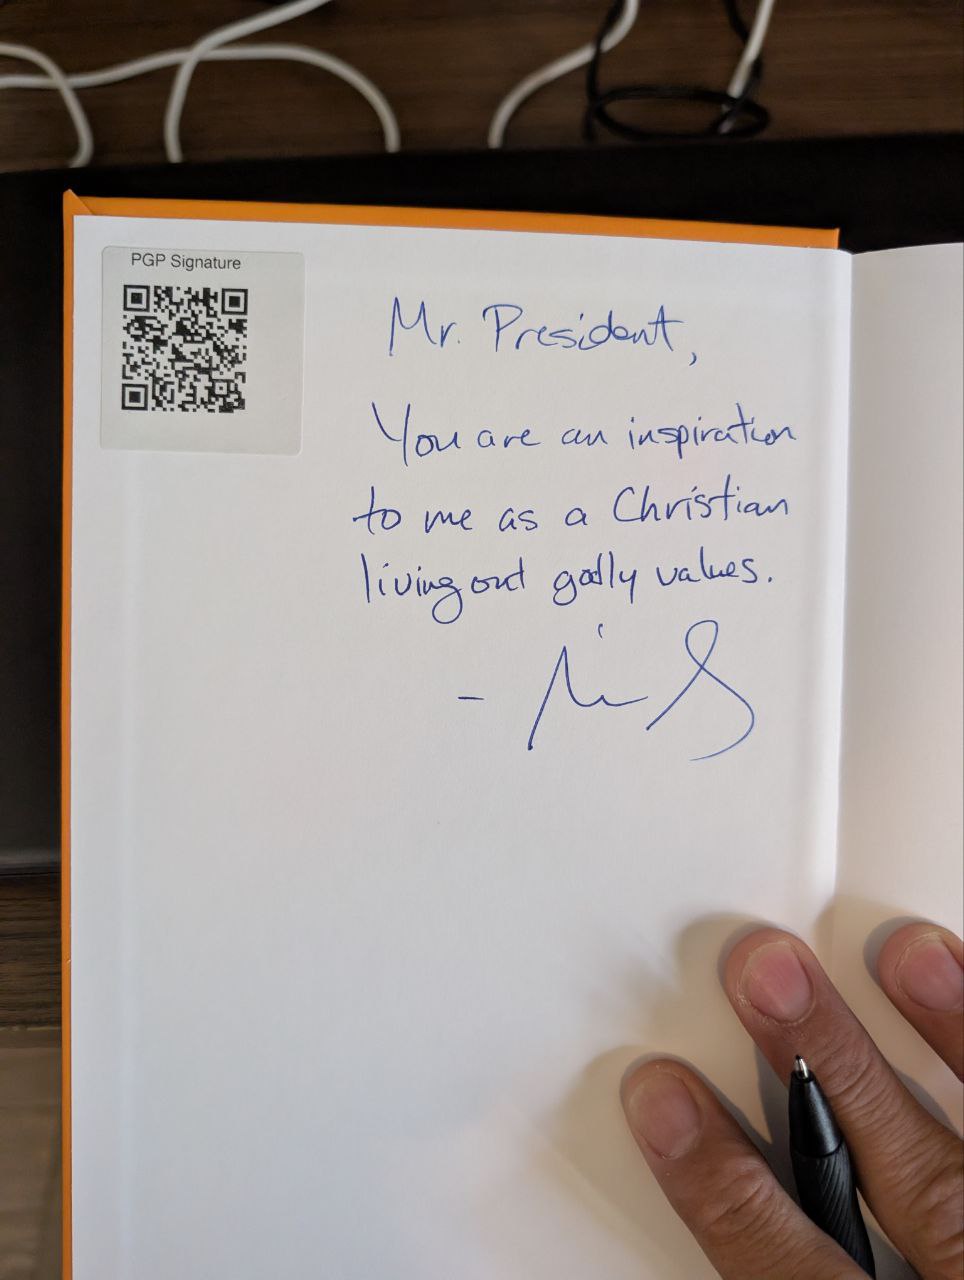 PGP Signature
Mr. President,
You are an inspiration
to me as a Christian
living out godly values.